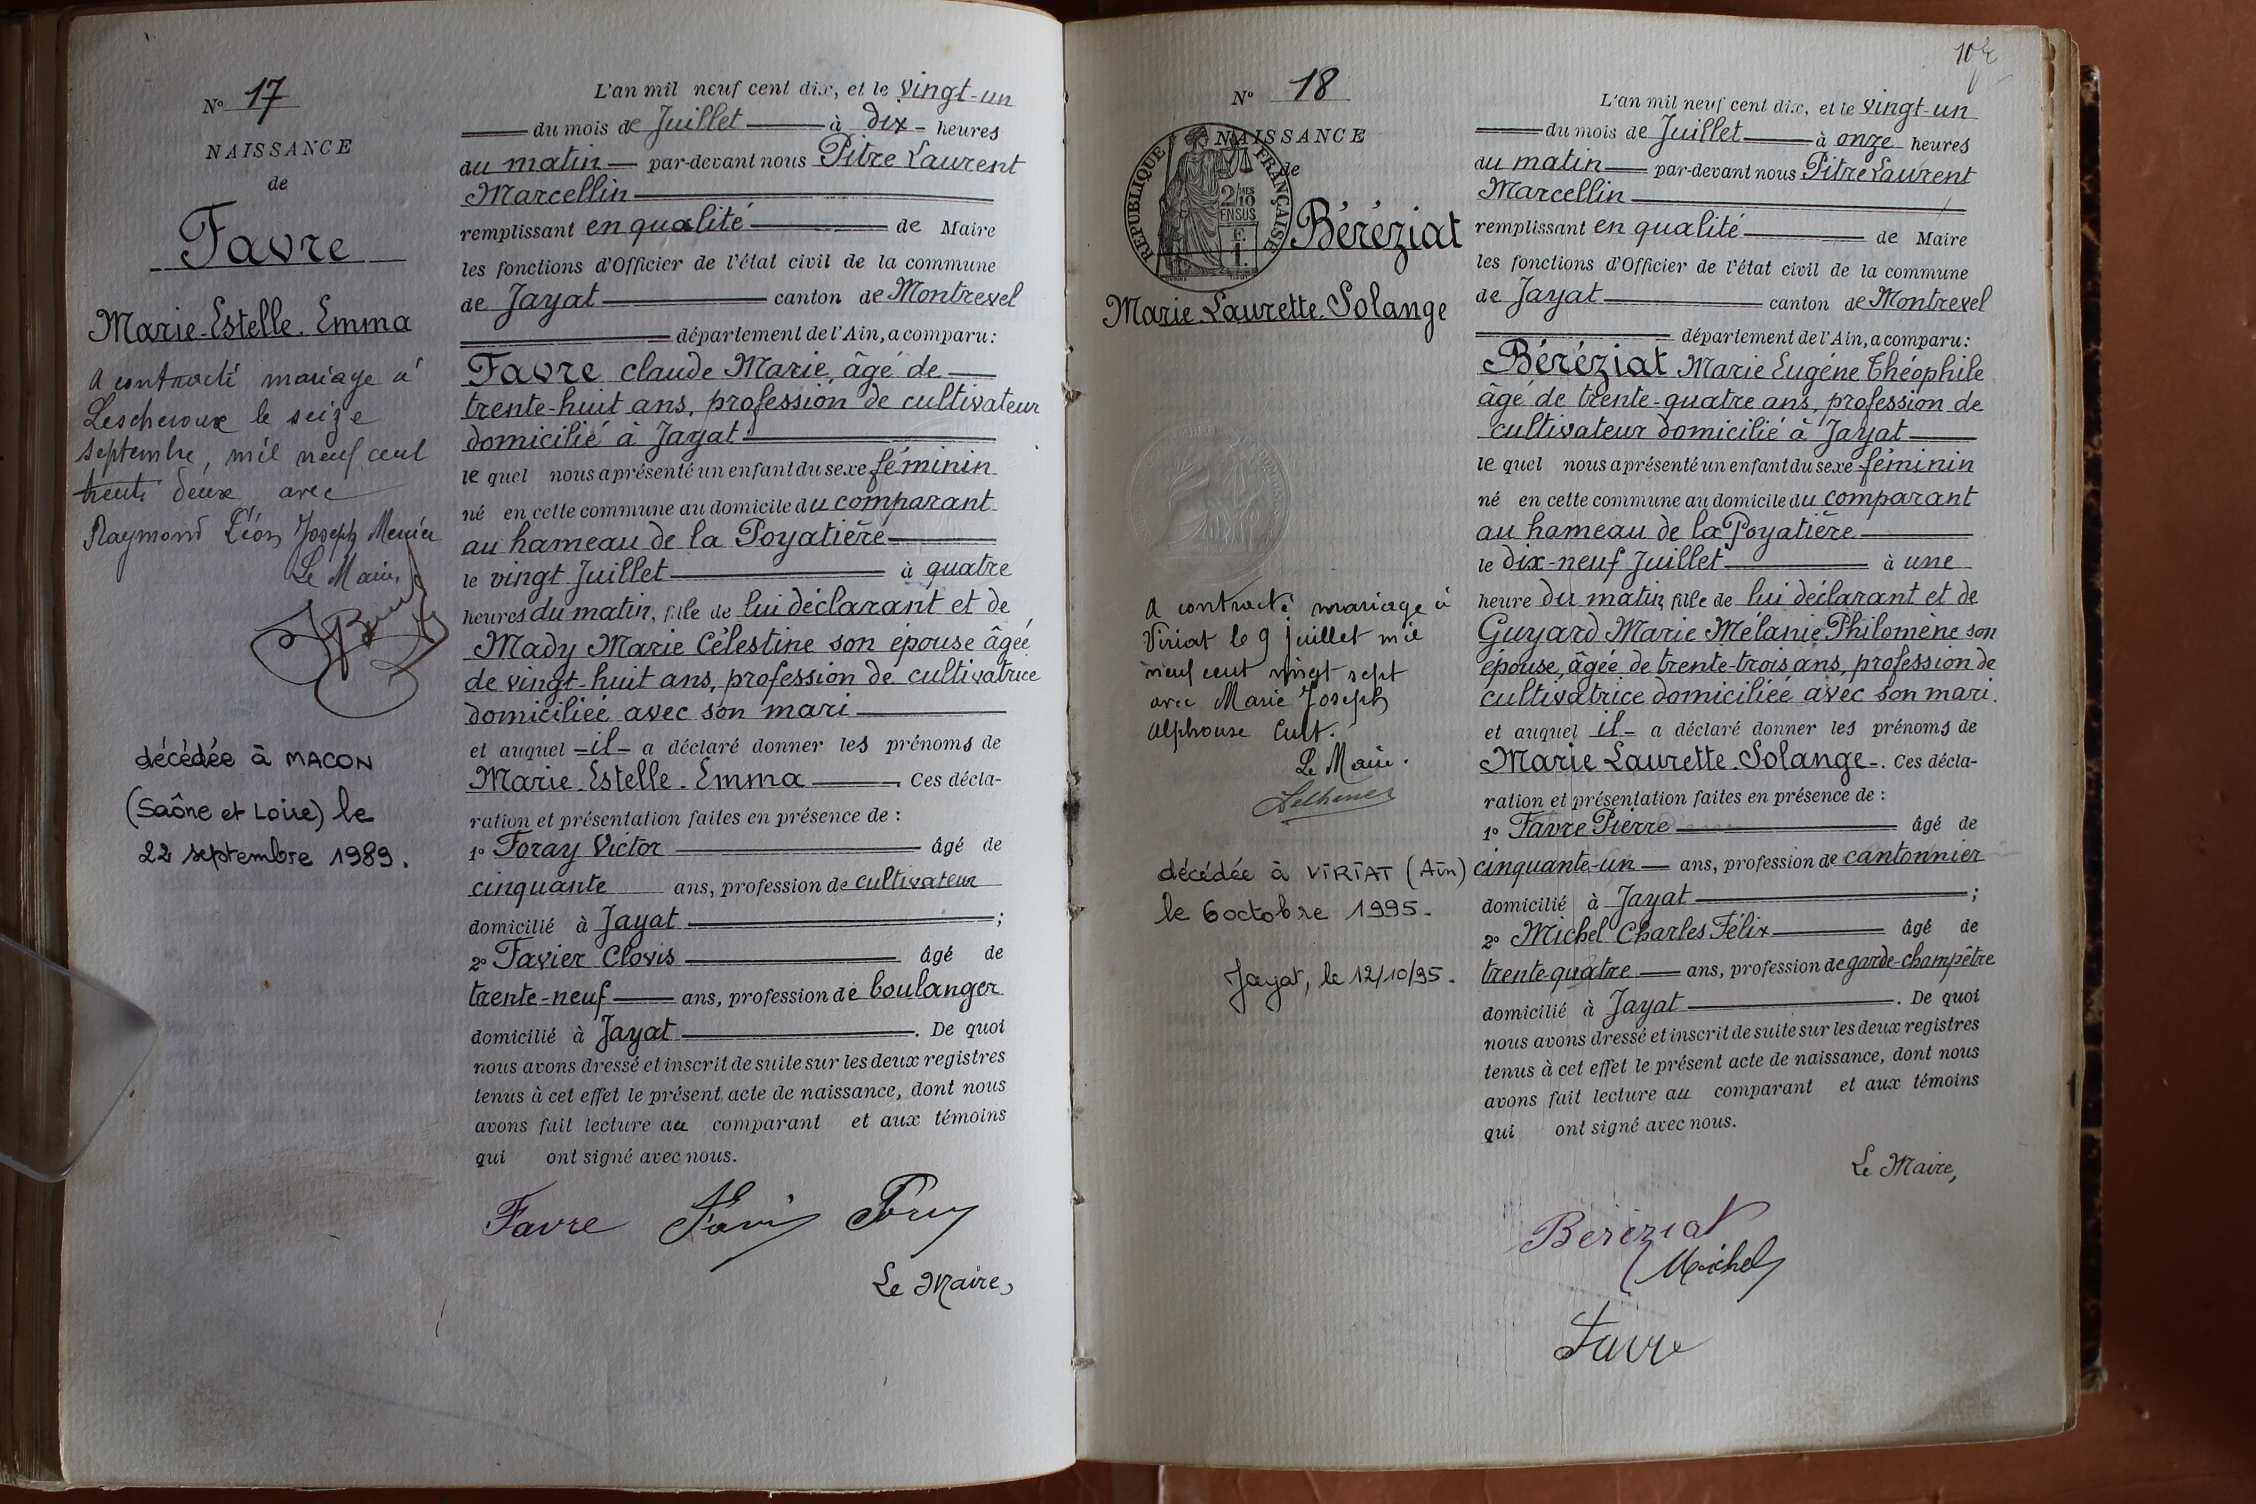 N° 17
NAISSANCE
de
Favre
Marie-Estelle-Emma
A contracté mariage à
Lescheroux le seize
septembre, mil neuf cent
trente deux, avec
Raymond Léon Joseph
Le Maire,
décédée à MACON
(Saône et Loire) le
22 septembre 1989.
L'an mil neuf cent dix, et le vingt-un
du mois de Juillet à dix heures
du matin par-devant nous Pitre Laurent
Marcellin
remplissant en qualité de Maire
les fonctions d'Officier de l'état civil de la commune
de Jayat canton de Montrevel
département de l'Ain, a comparu:
Favre Claude Marie, âgé de
trente-huit ans, profession de cultivateur
domicilié à Jayat
le quel nous a présenté un enfant du sexe féminin
né en cette commune au domicile du comparant
au hameau de la Poyatière
le vingt Juillet à quatre
heures du matin, fille de lui déclarant et de
Mady Marie Célestine son épouse âgée
de vingt-huit ans, profession de cultivatrice
domiciliée avec son mari
et auquel il a déclaré donner les prénoms de
Marie-Estelle-Emma. Ces décla-
ration et présentation faites en présence de :
1° Foray Victor âgé de
cinquante ans, profession de cultivateur
domicilié à Jayat ;
2° Favier Clovis âgé de
trente-neuf ans, profession de boulanger
domicilié à Jayat. De quoi
nous avons dressé et inscrit de suite sur les deux registres
tenus à cet effet le présent acte de naissance, dont nous
avons fait lecture au comparant et aux témoins
qui ont signé avec nous.
Favre
Le Maire,
N° 18
NAISSANCE
de
RÉPUBLIQUE FRANÇAISE
2/10 EN SUS
Béréziat
Marie-Laurette-Solange
A contracté mariage à
Viriat le 9 juillet mil
neuf cent vingt sept
avec Marie Joseph
Alphonse Cult.
Le Maire.
décédée à VIRIAT (Ain)
le 6 octobre 1995.
Jayat, le 12/10/95.
L'an mil neuf cent dix, et le vingt-un
du mois de Juillet à onze heures
du matin par-devant nous Pitre Laurent
Marcellin
remplissant en qualité de Maire
les fonctions d'Officier de l'état civil de la commune
de Jayat canton de Montrevel
département de l'Ain, a comparu:
Béréziat Marie Eugène Théophile
âgé de trente-quatre ans, profession de
cultivateur domicilié à Jayat
le quel nous a présenté un enfant du sexe féminin
né en cette commune au domicile du comparant
au hameau de la Poyatière
le dix-neuf Juillet à une
heure du matin, fille de lui déclarant et de
Guyard Marie Mélanie Philomène son
épouse, âgée de trente-trois ans, profession de
cultivatrice domiciliée avec son mari.
et auquel il a déclaré donner les prénoms de
Marie Laurette-Solange. Ces décla-
ration et présentation faites en présence de :
1° Favre Pierre âgé de
cinquante-un ans, profession de cantonnier
domicilié à Jayat ;
2° Michel Charles Félix âgé de
trente-quatre ans, profession de garde-champêtre
domicilié à Jayat. De quoi
nous avons dressé et inscrit de suite sur les deux registres
tenus à cet effet le présent acte de naissance, dont nous
avons fait lecture au comparant et aux témoins
qui ont signé avec nous.
Le Maire,
Béréziat
Michel
Favre